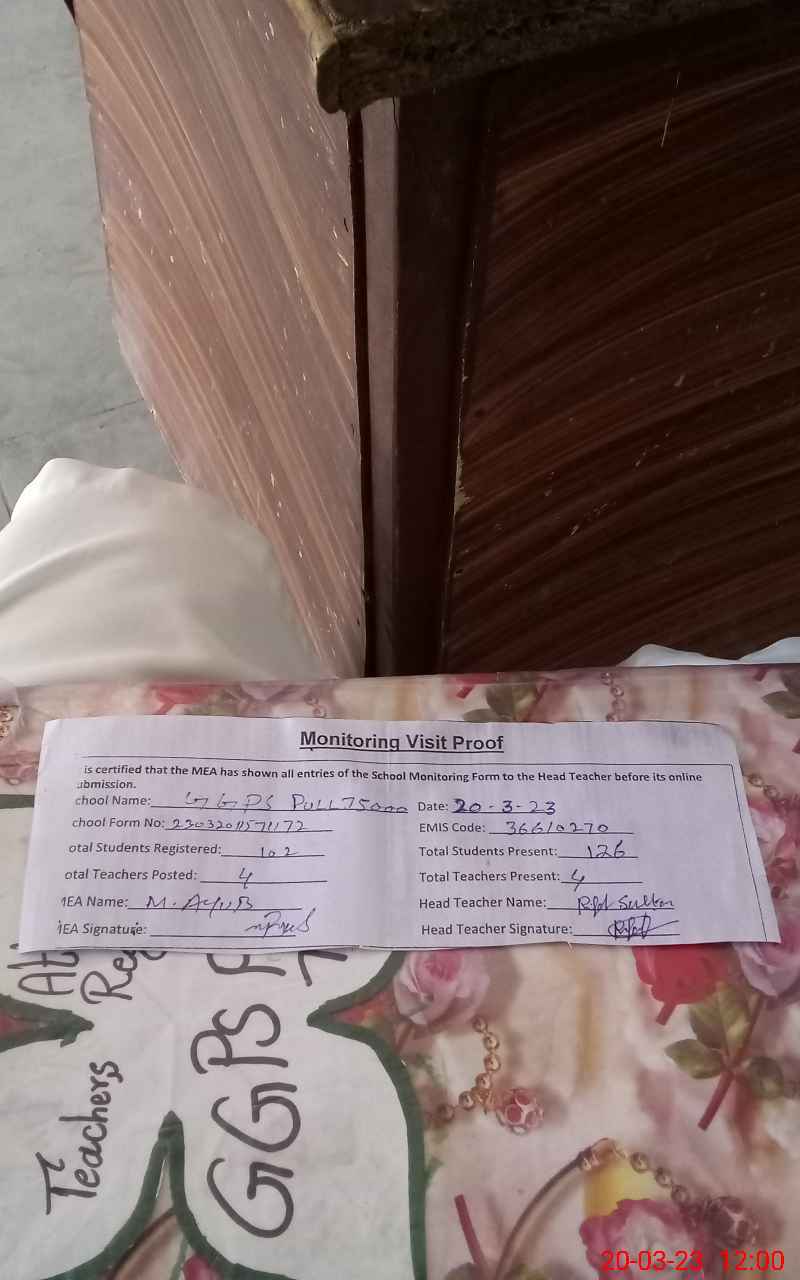 Monitoring Visit Proof
is certified that the MEA has shown all entries of the School Monitoring Form to the Head Teacher before its online
ubmission.
chool Name: GGPS PULL75000 Date: 20-3-23
chool Form No: EMIS Code: 36610270
otal Students Registered: 102 Total Students Present: 126
otal Teachers Posted: 4 Total Teachers Present: 4
MEA Name: M. Head Teacher Name:
MEA Signature: Head Teacher Signature:
Teachers
GGPS
20-03-23 12:00